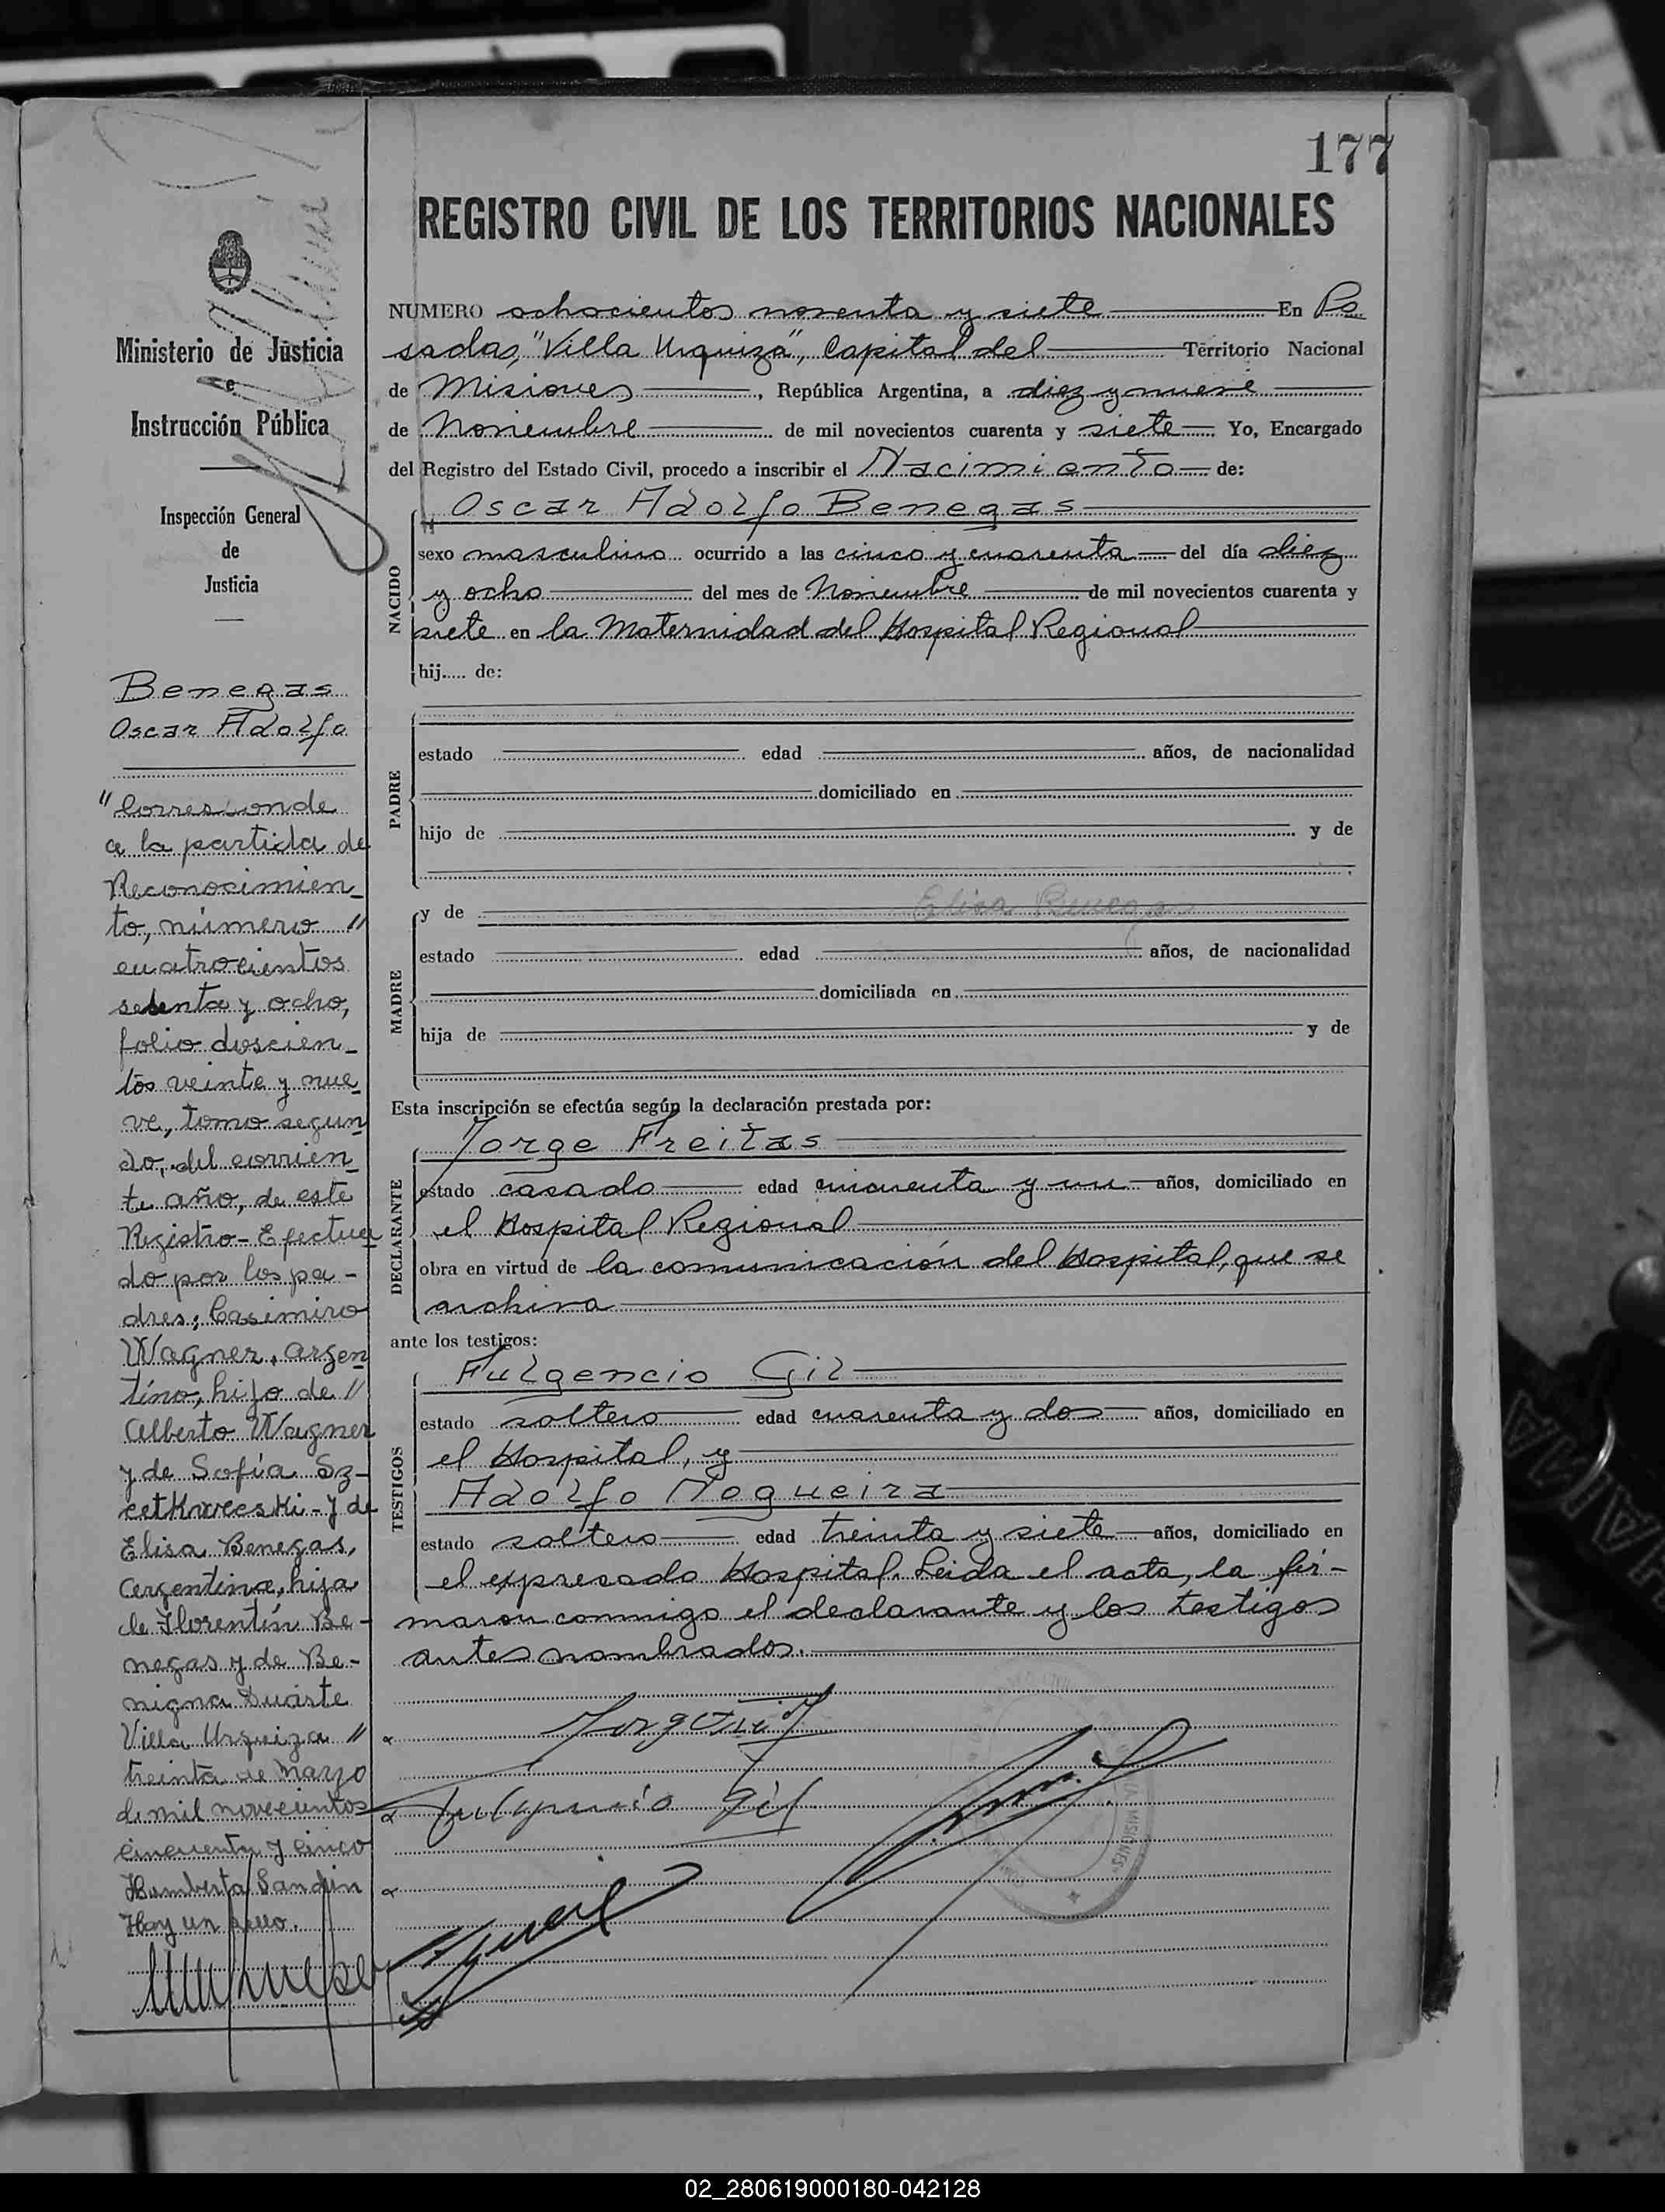 177
REGISTRO CIVIL DE LOS TERRITORIOS NACIONALES
Ministerio de Justicia
e
Instrucción Pública
Inspección General
de
Justicia
Benegas
Oscar Adolfo
"Corresponde
a la partida de
Reconocimien-
to, número "
cuatrocientos
setenta y ocho,
folio doscien-
tos veinte y nue-
ve, tomo segun
do, del corrien-
te año, de este
Registro - Efectua
do por los pa-
dres; Casimiro
Wagner, argen
tino, hijo de "
Alberto Wagner
y de Sofía Sz-
cetkowceski - y de
Elisa Benegas,
Argentina, hija
de Florentín Be-
negas y de Be-
nigna Duarte
Villa Urquiza "
treinta de Marzo
de mil novecientos
cincuenta y cinco
Humberto Sandin
Hay un sello.
NUMERO ochocientos noventa y siete En Po
sadas, "Villa Urquiza", Capital del Territorio Nacional
de Misiones, República Argentina, a diez y nueve
de Noviembre de mil novecientos cuarenta y siete Yo, Encargado
del Registro del Estado Civil, procedo a inscribir el Nacimiento de:
Oscar Adolfo Benegas
NACIDO
sexo masculino ocurrido a las cinco y cuarenta del día diez
y ocho del mes de Noviembre de mil novecientos cuarenta y
siete en la Maternidad del Hospital Regional
hij..... de:
PADRE
estado edad años, de nacionalidad
domiciliado en
hijo de y de
MADRE
y de Elisa Benegas
estado edad años, de nacionalidad
domiciliada en
hija de y de
Esta inscripción se efectúa según la declaración prestada por:
Jorge Freitas
DECLARANTE
estado casado edad cincuenta y un años, domiciliado en
el Hospital Regional
obra en virtud de la comunicación del Hospital, que se
archiva
ante los testigos:
Fulgencio Gil
TESTIGOS
estado soltero edad cuarenta y dos años, domiciliado en
el Hospital, y
Adolfo Nogueira
estado soltero edad treinta y siete años, domiciliado en
el expresado Hospital. Leida el acta, la fir-
maron conmigo el declarante y los testigos
antes nombrados.
Fulgencio Gil
02_280619000180-042128